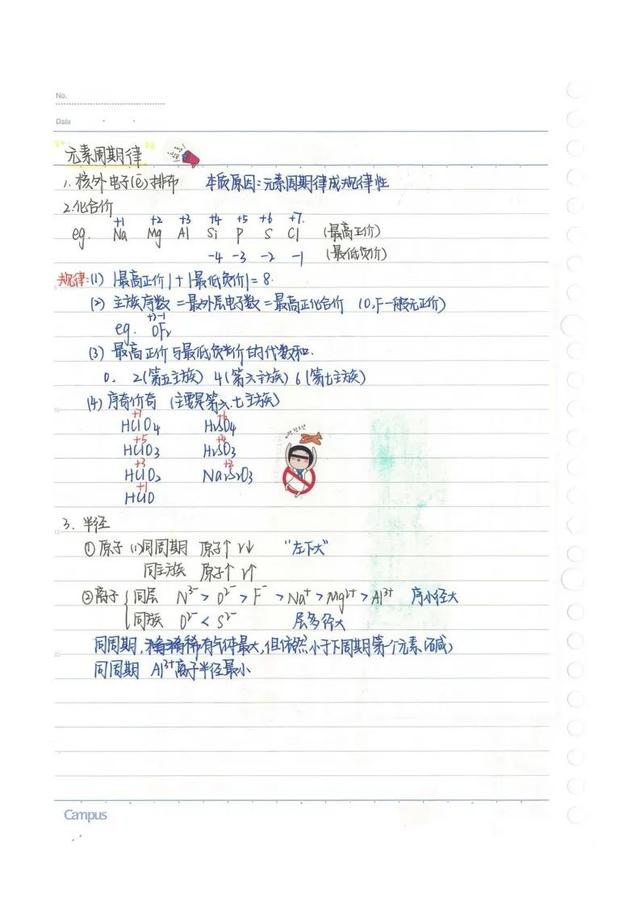 No.
Date
"元素周期律"
1. 核外电子(e⁻)排布 本质原因:元素周期律成规律性
2.化合价
+1 +2 +3 +4 +5 +6 +7
eg. Na Mg Al Si P S Cl (最高正价)
-4 -3 -2 -1 (最低负价)
规律:(1) |最高正价|+|最低负价|=8.
(2) 主族序数=最外层电子数=最高正化合价 (O,F一般无正价)
+2 -1
eg. OF₂
(3) 最高正价与最低负价的代数和.
0. 2(第五主族) 4(第六主族) 6(第七主族)
(4) 序奇价奇 (主要是第六、七主族)
+7 +6
HClO₄ H₂SO₄
+5 +4
HClO₃ H₂SO₃
+3 +2
HClO₂ Na₂S₂O₃
+1
HClO
3. 半径
①原子 (1)同周期 原子↑ r↓ "左下大"
同主族 原子↑ r↑
②离子 { 同层 N³⁻ > O²⁻ > F⁻ > Na⁺ > Mg²⁺ > Al³⁺ 序小径大
同族 O²⁻ < S²⁻ 层多径大
同周期,稀有气体最大,但依然小于下周期第一个元素(碱)
同周期 Al³⁺离子半径最小
Campus